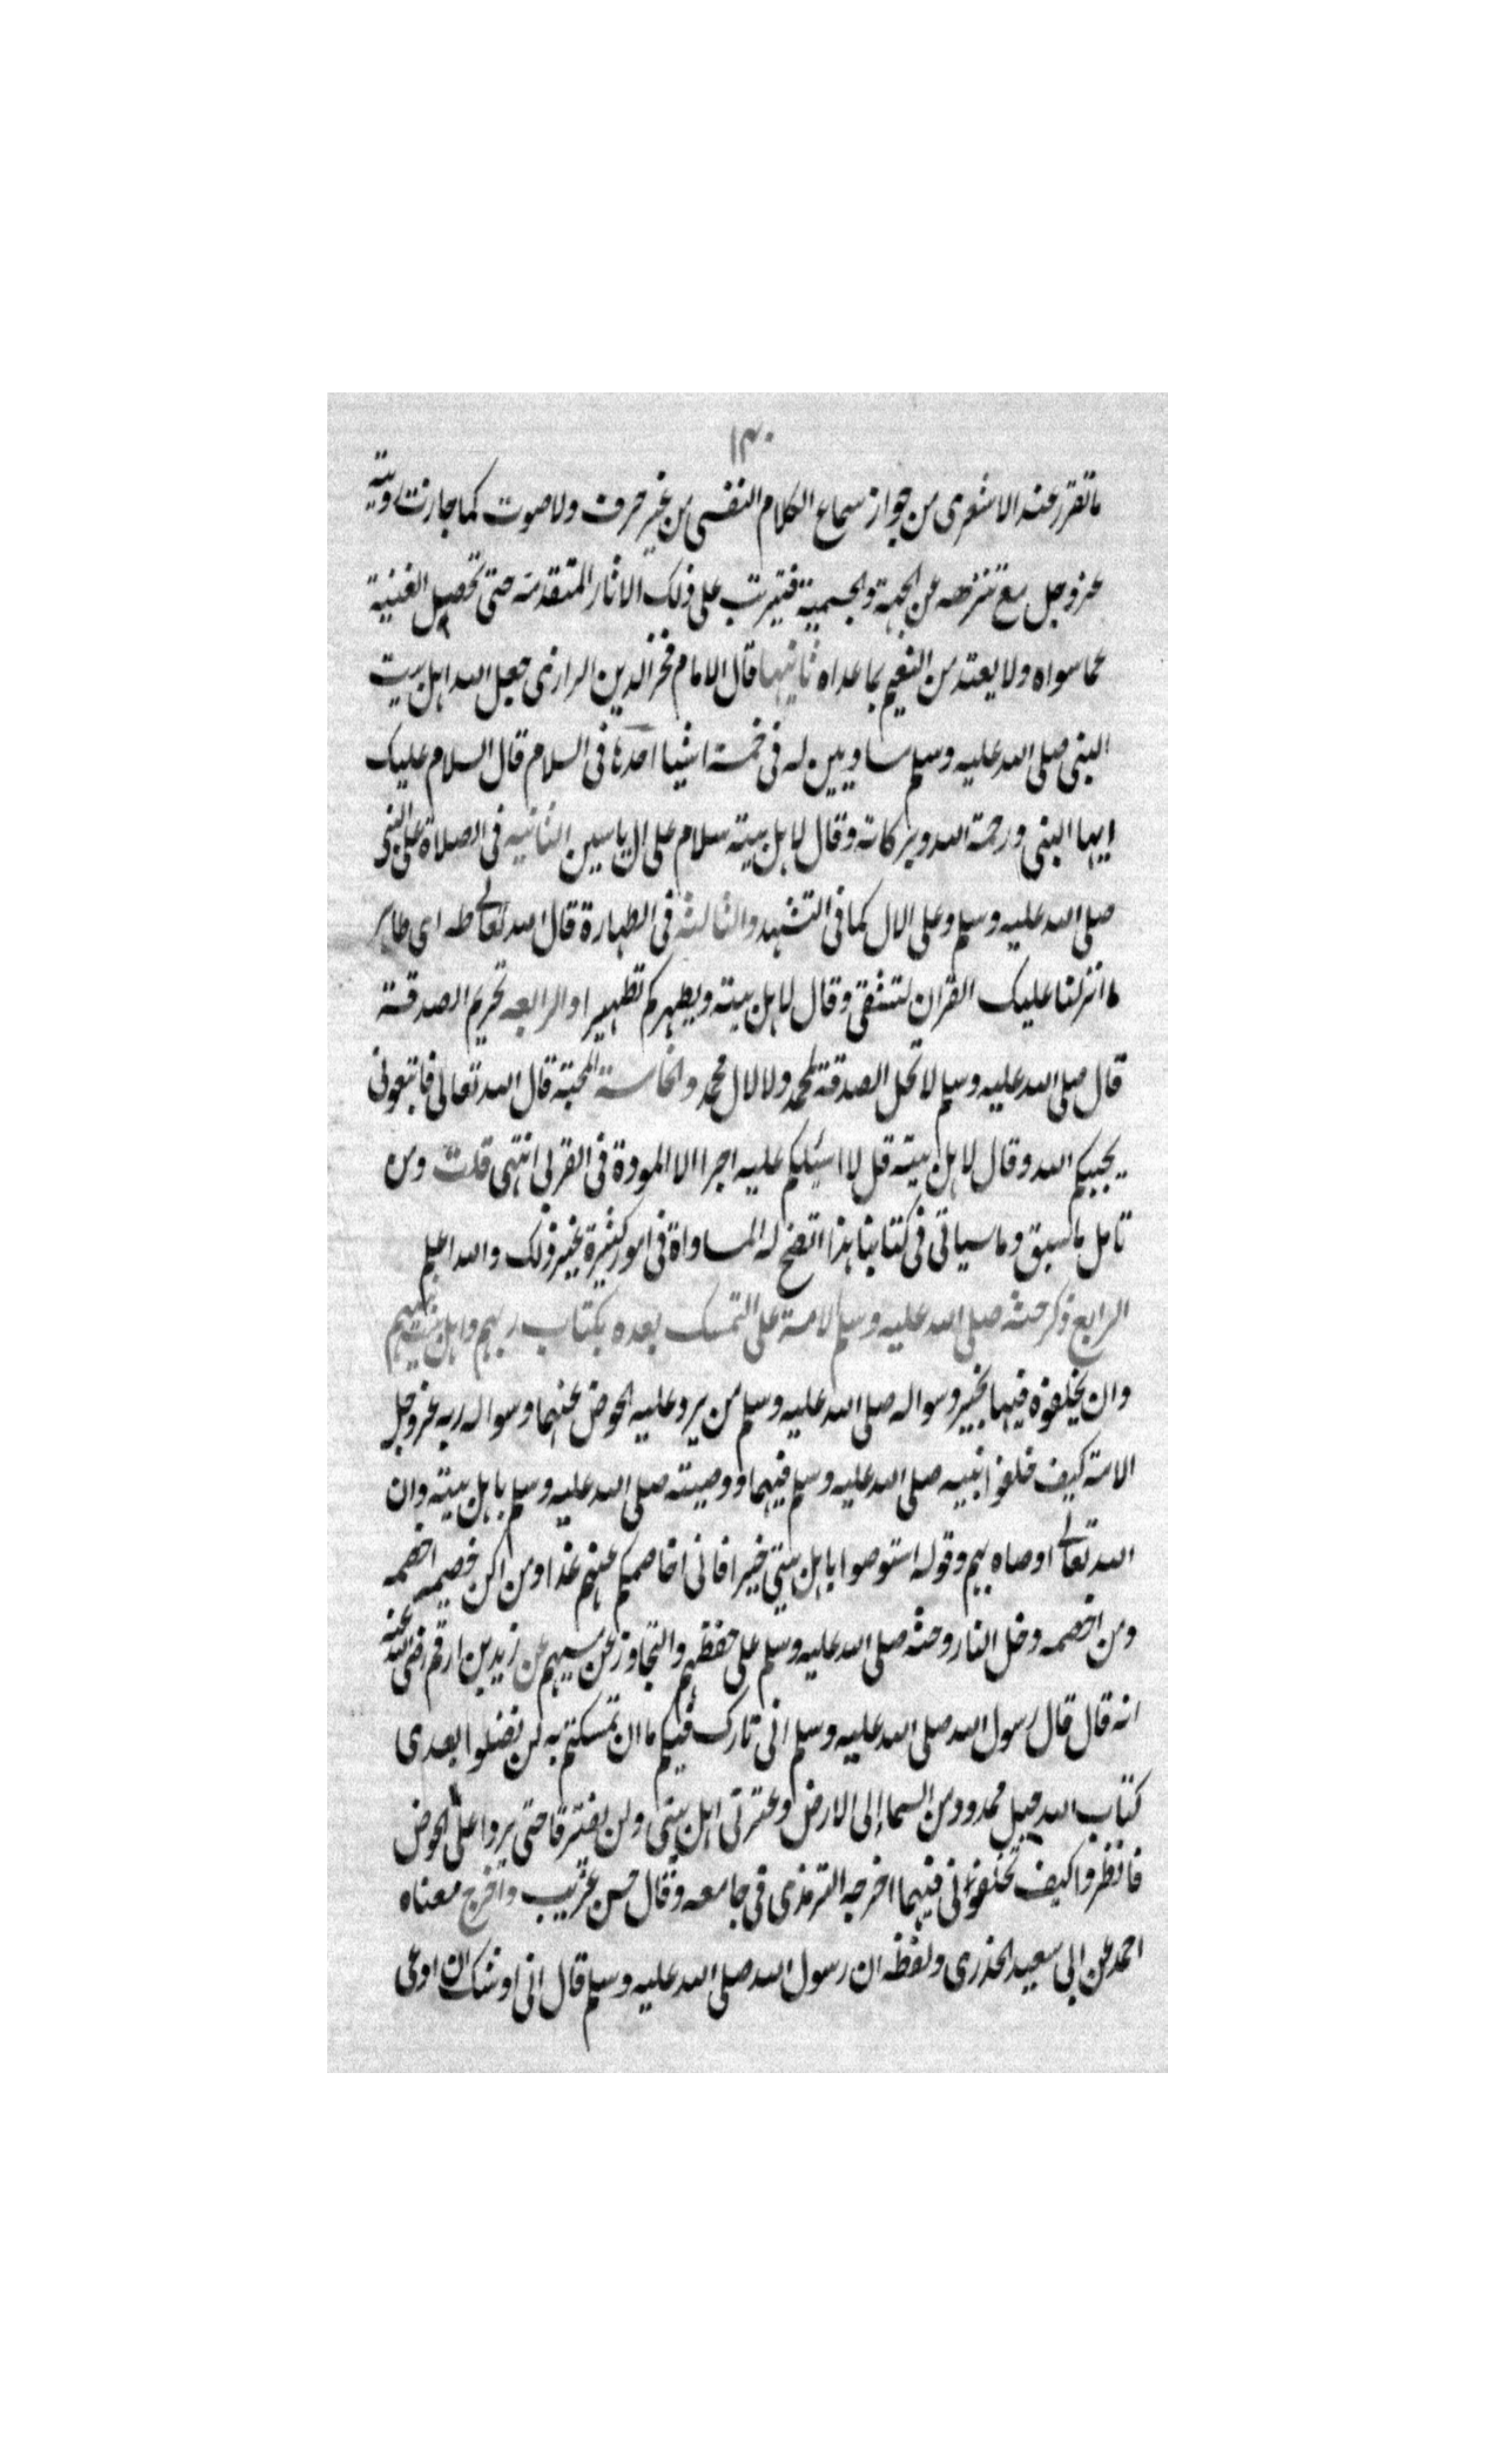 ١٣٠
ما تقرر عند الاشعرى من جواز سماع الكلام النفسى من غير حرف ولا صوت كما جازت رويته
عز وجل مع تنزهه عن الجهة والجسمية فتيرتب على ذلك الاثار المتقدمة حتى تحصل الغنية
عما سواه ولا يعتد من النعيم بما عداه ثانيها قال الامام فخر الدين الرازى جعل الله اهل بيت
النبى صلى الله عليه وسلم مساويين له فى خمسة اشيا احدها فى السلام قال السلام عليك
ايها النبى ورحمة الله وبركاته وقال لاهل بيته سلام على ال ياسين الثانيه فى الصلاة على النبى
صلى الله عليه وسلم وعلى الال كما فى التشهد والثالثة فى الطهارة قال الله تعالى طه اى طاهر
ما انزلنا عليك القران لتشقى وقال لاهل بيته ويطهركم تطهيرا والرابعه تحريم الصدقة
قال صلى الله عليه وسلم لا تحل الصدقة لمحمد ولا لال محمد والخامسة المحبة قال الله تعالى فاتبعونى
يحببكم الله وقال لاهل بيته قل لا اسئلكم عليه اجرا الا المودة فى القربى انتهى قلت ومن
تامل ما سبق وما سياتى فى كتابنا هذا اتضح له المساواة فى امور كثيرة بخير ذلك والله اعلم
الرابع ذكر حثه صلى الله عليه وسلم الامة على التمسك بعده بكتاب ربهم واهل بيت نبيهم
وان يخلفوه فيها بخير وسواله صلى الله عليه وسلم من يرد عليه الحوض عنهما وسواله ربه عز وجل
الامة كيف خلفوا نبيه صلى الله عليه وسلم فيهما ووصيته صلى الله عليه وسلم باهل بيته وان
الله تعالى اوصاه بهم وقوله استوصوا باهل بيتى خيرا فانى اخاصمكم عنهم غدا ومن اكن خصيمه اخصمه
ومن اخصمه دخل النار وحثه صلى الله عليه وسلم على حفظهم والتجاوز عن مسيهم عن زيد بن ارقم رضى الله عنه
انه قال قال رسول الله صلى الله عليه وسلم انى تارك فيكم ما ان تمسكتم به لن تضلوا بعدى
كتاب الله حبل ممدود من السما إلى الارض وعترتى اهل بيتى ولن يفترقا حتى يردا على الحوض
فانظروا كيف تخلفونى فيهما اخرجه الترمذى فى جامعه وقال حسن غريب واخرج معناه
احمد عن ابى سعيد الخذرى ولفظه ان رسول الله صلى الله عليه وسلم قال انى اوشك ان ادعى